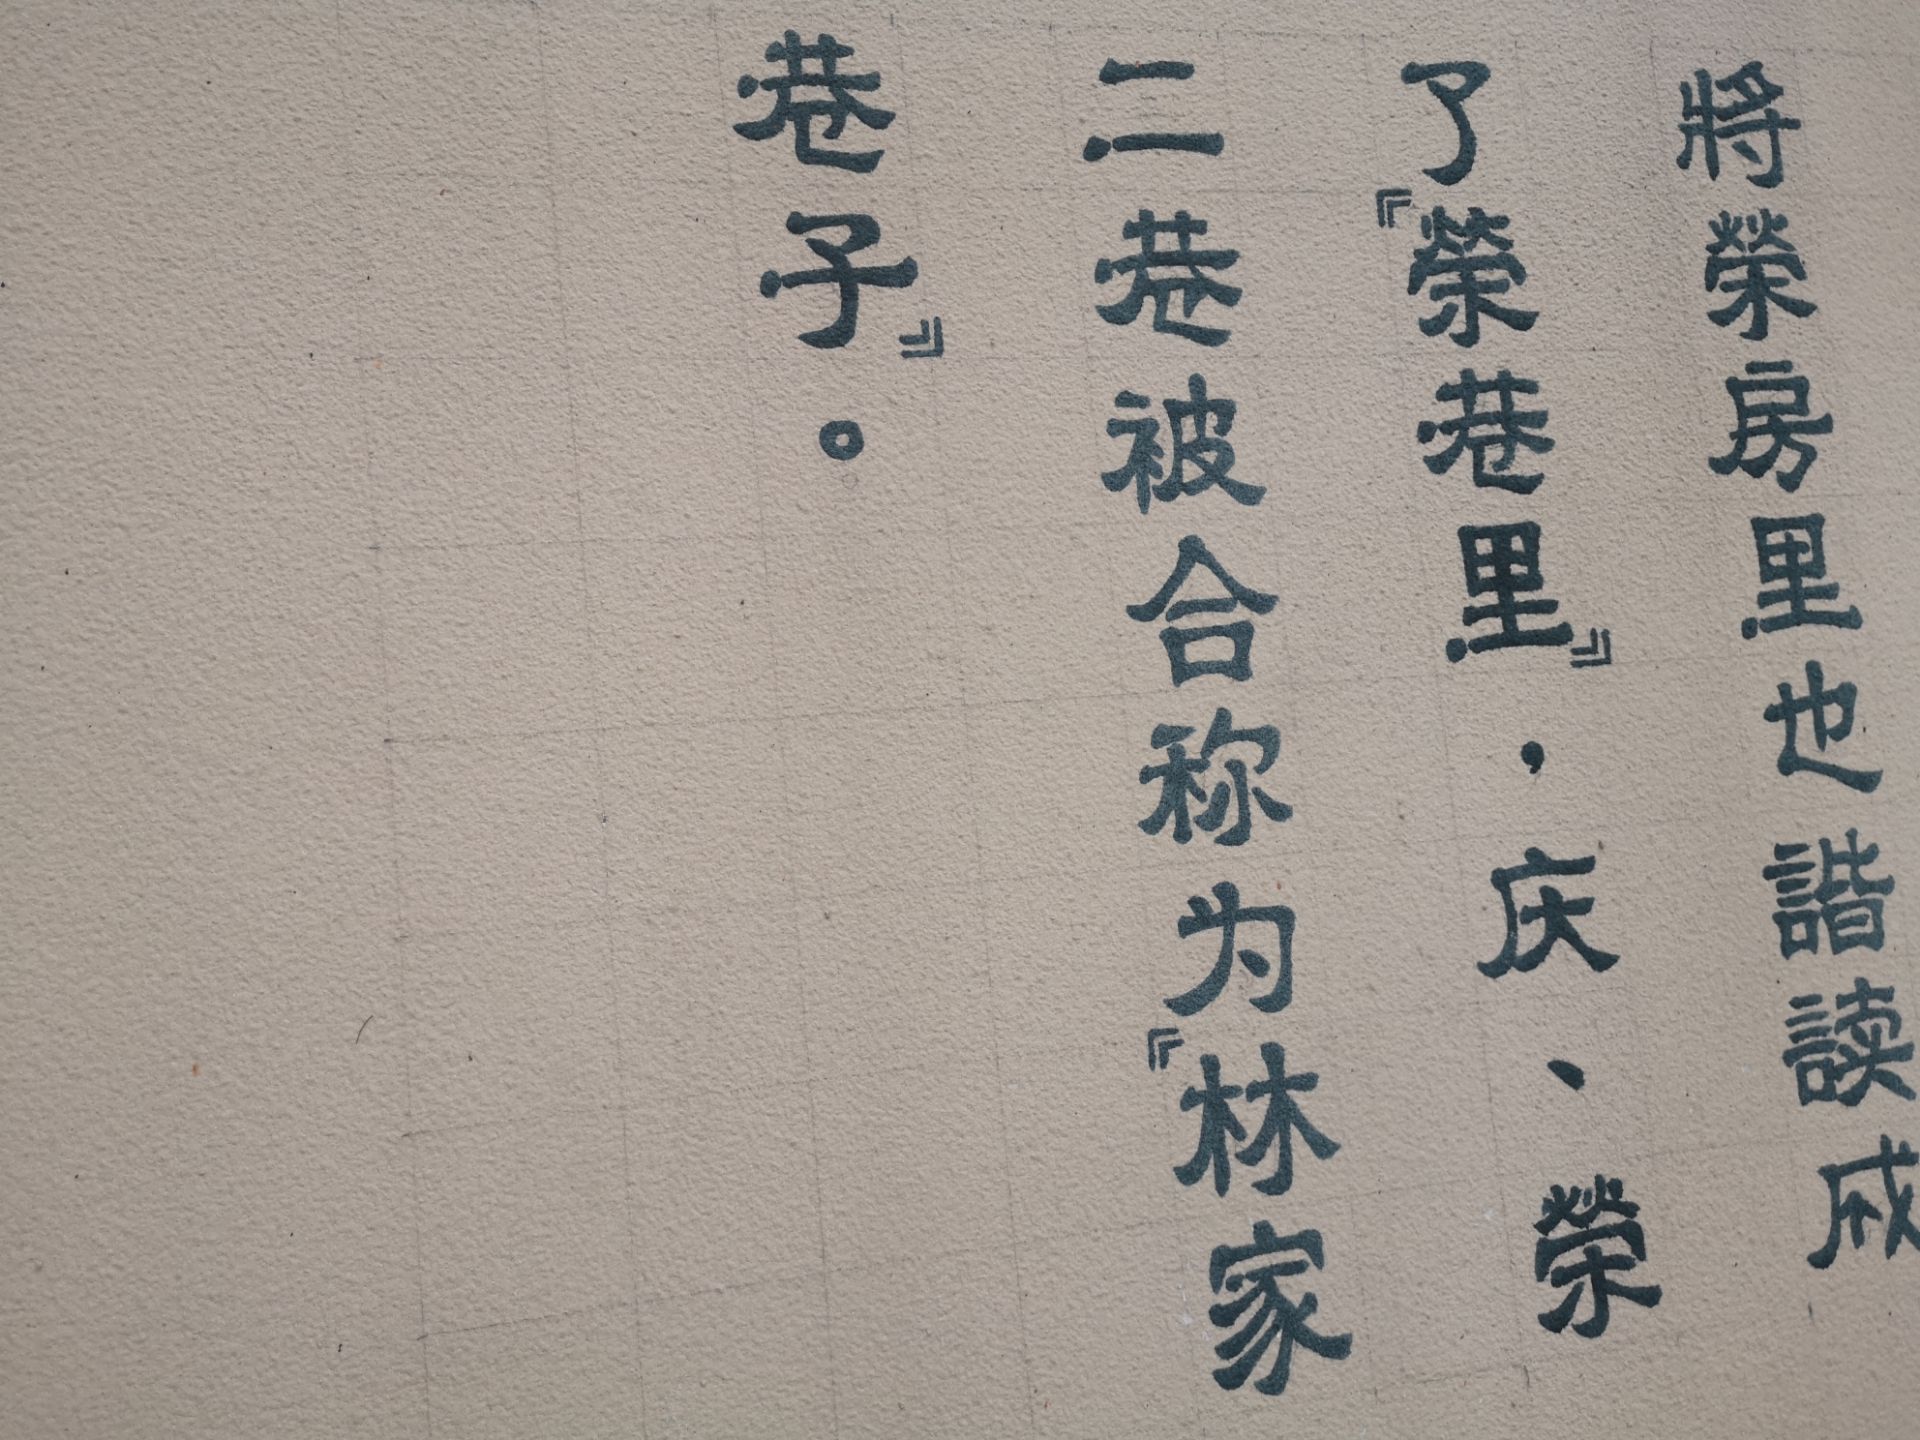 將榮房里也諧读成
了『榮巷里』，庆、榮
二巷被合称为『林家
巷子』。